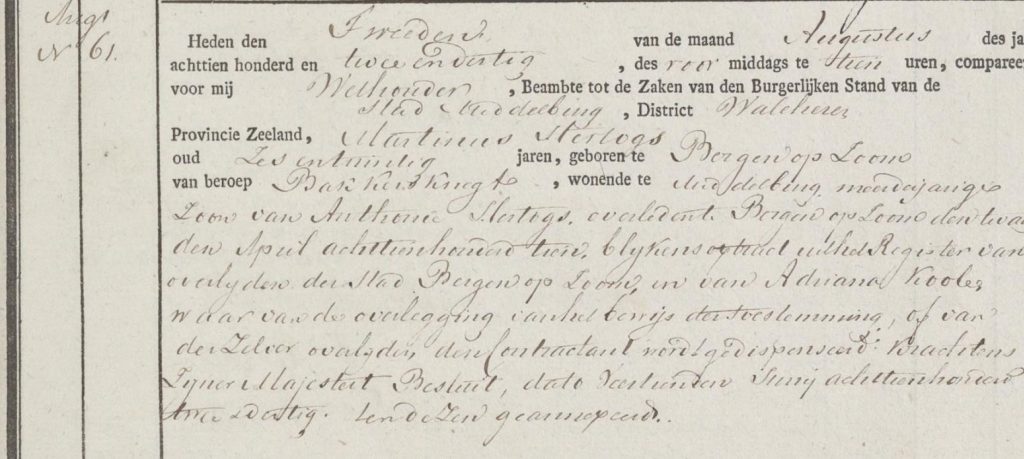 Augs
No 61.
Heden den Tweeden van de maand Augustus des ja
achttien honderd en twee en dertig , des voor middags te tien uren, compareer
voor mij Wethouder , Beambte tot de Zaken van den Burgerlijken Stand van de
Stad Middelburg , District Walcheren
Provincie Zeeland, Martinus Hertogs
oud Zes en twintig jaren, geboren te Bergen op Zoom
van beroep Bakkers knegt , wonende te Middelburg meerderjarige
Zoon van Anthonie Hertogs, overleden te Bergen op Zoom den twaa
den April achttienhonderd tien, blykens extract uit het Register van
overlyden der Stad Bergen op Zoom, en van Adriana Koole,
waar van de overlegging van het bewys der toestemming, of van
der Zelver overlyden den Contractant wordt gedispenseerd Krachtens
Zyner Majesteit Besluit, dato Veertienden Juny achttienhonderd
twee en dertig. ten deZen geannexeerd.